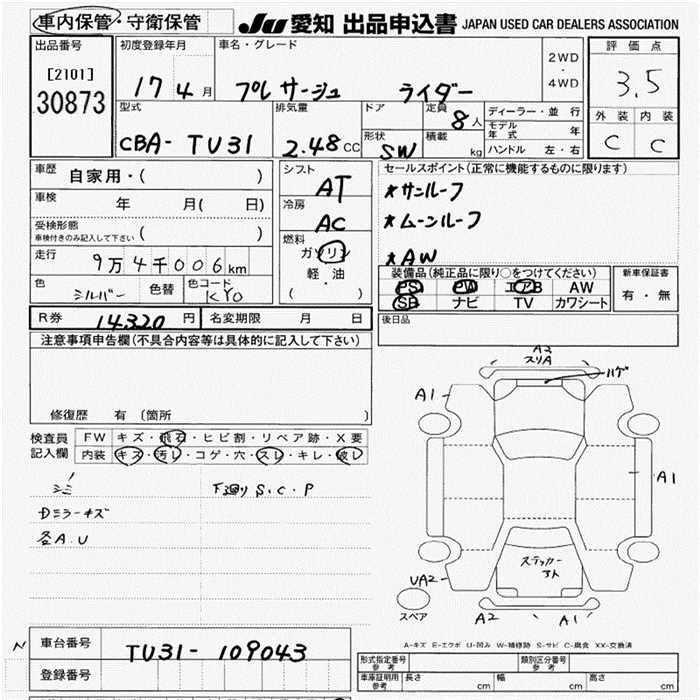 車内保管・守衛保管 JU 愛知 出品申込書 JAPAN USED CAR DEALERS ASSOCIATION
出品番号 初度登録年月 車名・グレード 2WD・4WD 評価点
[2101]
30873
17 4月 プレサージュ ライダー 3.5
型式 排気量 ドア 定員 8人 ディーラー・並行 外装 内装
CBA- TU31 2.48CC 形状 SW 積載 kg モデル年式 年 C C
ハンドル 左・右
車歴 自家用・( ) シフト AT セールスポイント(正常に機能するものに限ります)
車検 年 月( 日) 冷房 AC *サンルーフ
受検形態 *ムーンルーフ
車検付きのみ記入して下さい ( ) 燃料 ガソリン *AW
走行 9万4千006km 軽油 装備品(純正品に限り○をつけてください) 新車保証書
色 シルバー 色替 色コード KY0 ( ) PS PW エアB AW 有・無
SR ナビ TV カワシート
R券 14,320円 名変期限 月 日 後日品
注意事項申告欄(不具合内容等は具体的に記入して下さい)
修復歴 有 (箇所 )
検査員記入欄 FW キズ・飛石・ヒビ割・リペア跡・X要
内装 キズ・汚レ・コゲ・穴・スレ・キレ・破レ
シミ 下廻りS.C.P
Dミラーキズ
各A.U
A2
スリA
ハゲ
A1
A1
ステッカー
アト
UA2
スペア A2 A1
A-キズ E-エクボ U-凹み W-補修跡 S-サビ C-腐食 XX-交換済
N 車台番号 TU31-109043
登録番号
形式指定番号 参考 類別区分番号 参考
車庫証明用 参考 長さ cm 幅 cm 高さ cm